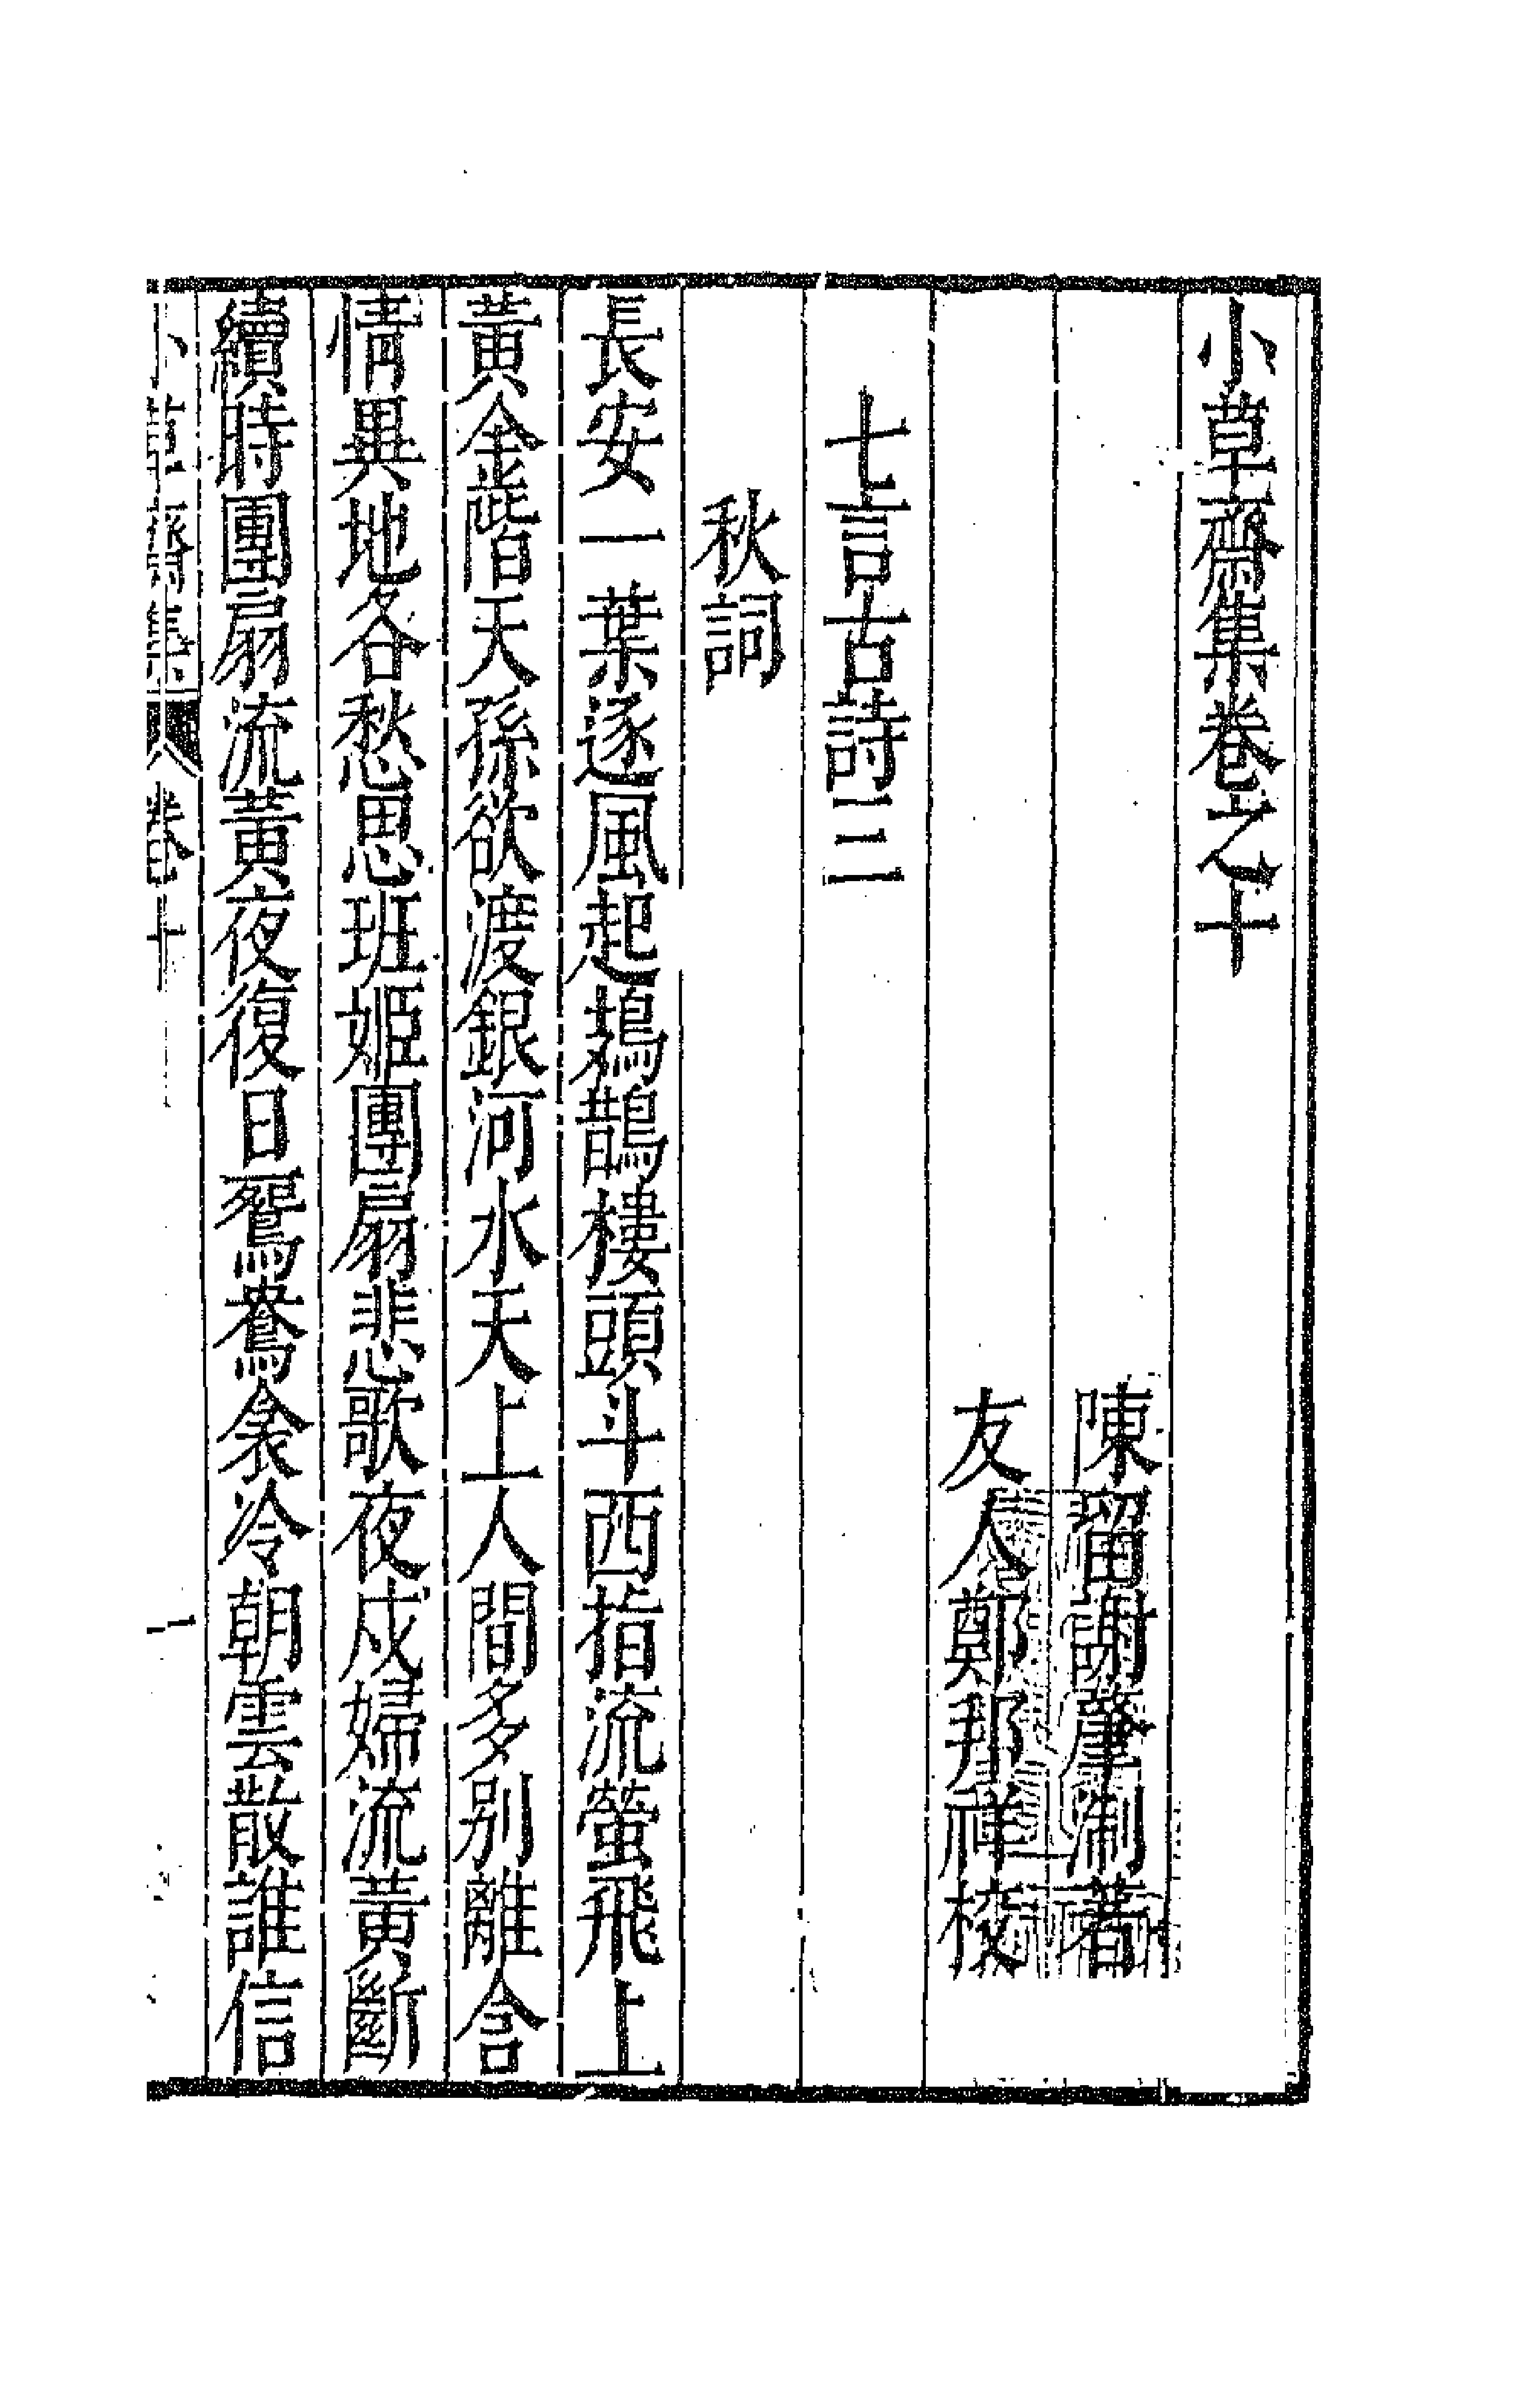 小草齋集卷之十
陳留謝肇淛著
友人鄭邦祥校
七言古詩三
秋詞
長安一葉逐風起鳷鵲樓頭斗西指流螢飛上
黃金階天孫欲渡銀河水天上人間多别離含
情異地各愁思班姬團扇悲歌夜戍婦流黃斷
續時團扇流黃夜復日鴛鴦衾冷朝雲散誰信
小草齋集 卷十 一